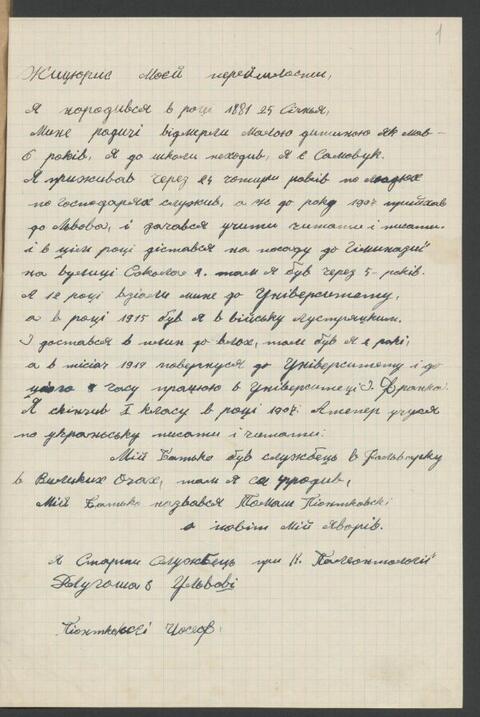 1
Жицюрис Моєй перейшлости,
Я народився в році 1881 25 Сечня,
Мине родичі відмерли малою дитиною як мав-
6 років, Я до школи неходив, Я є Самовук.
Я приживав через 24 чотири років по людях
по господарях служив, а ж до року 1907 прийхав
до Львова, і зачався учити читати і писати.
і в цім році дістався на посаду до Гімназиї
на вулиці Сокола 2. там я був через 5- років.
Я 12 році взіали мине до Університету,
а в році 1915 був я в війську Аустрицким.
І достався в плин до влох, там був я 2 рокі,
а в місіач 1919 повернувся до Університету і до
цього часу працюю в Університеці І. Франка.
Я скінчив I класу в році 1907. А тепер учуся
по українську писати і читати.
Мій Батько був службець в Фальварку
в Великих Очах, там я ся вродив,
Мій Батько назвався Томаш Піонтковскі
а повіт Мій Яворів.
Я Старши Службець при К. Палеонтології
Длугоша 8 Ульвові
Піонтковскі Йосеф.